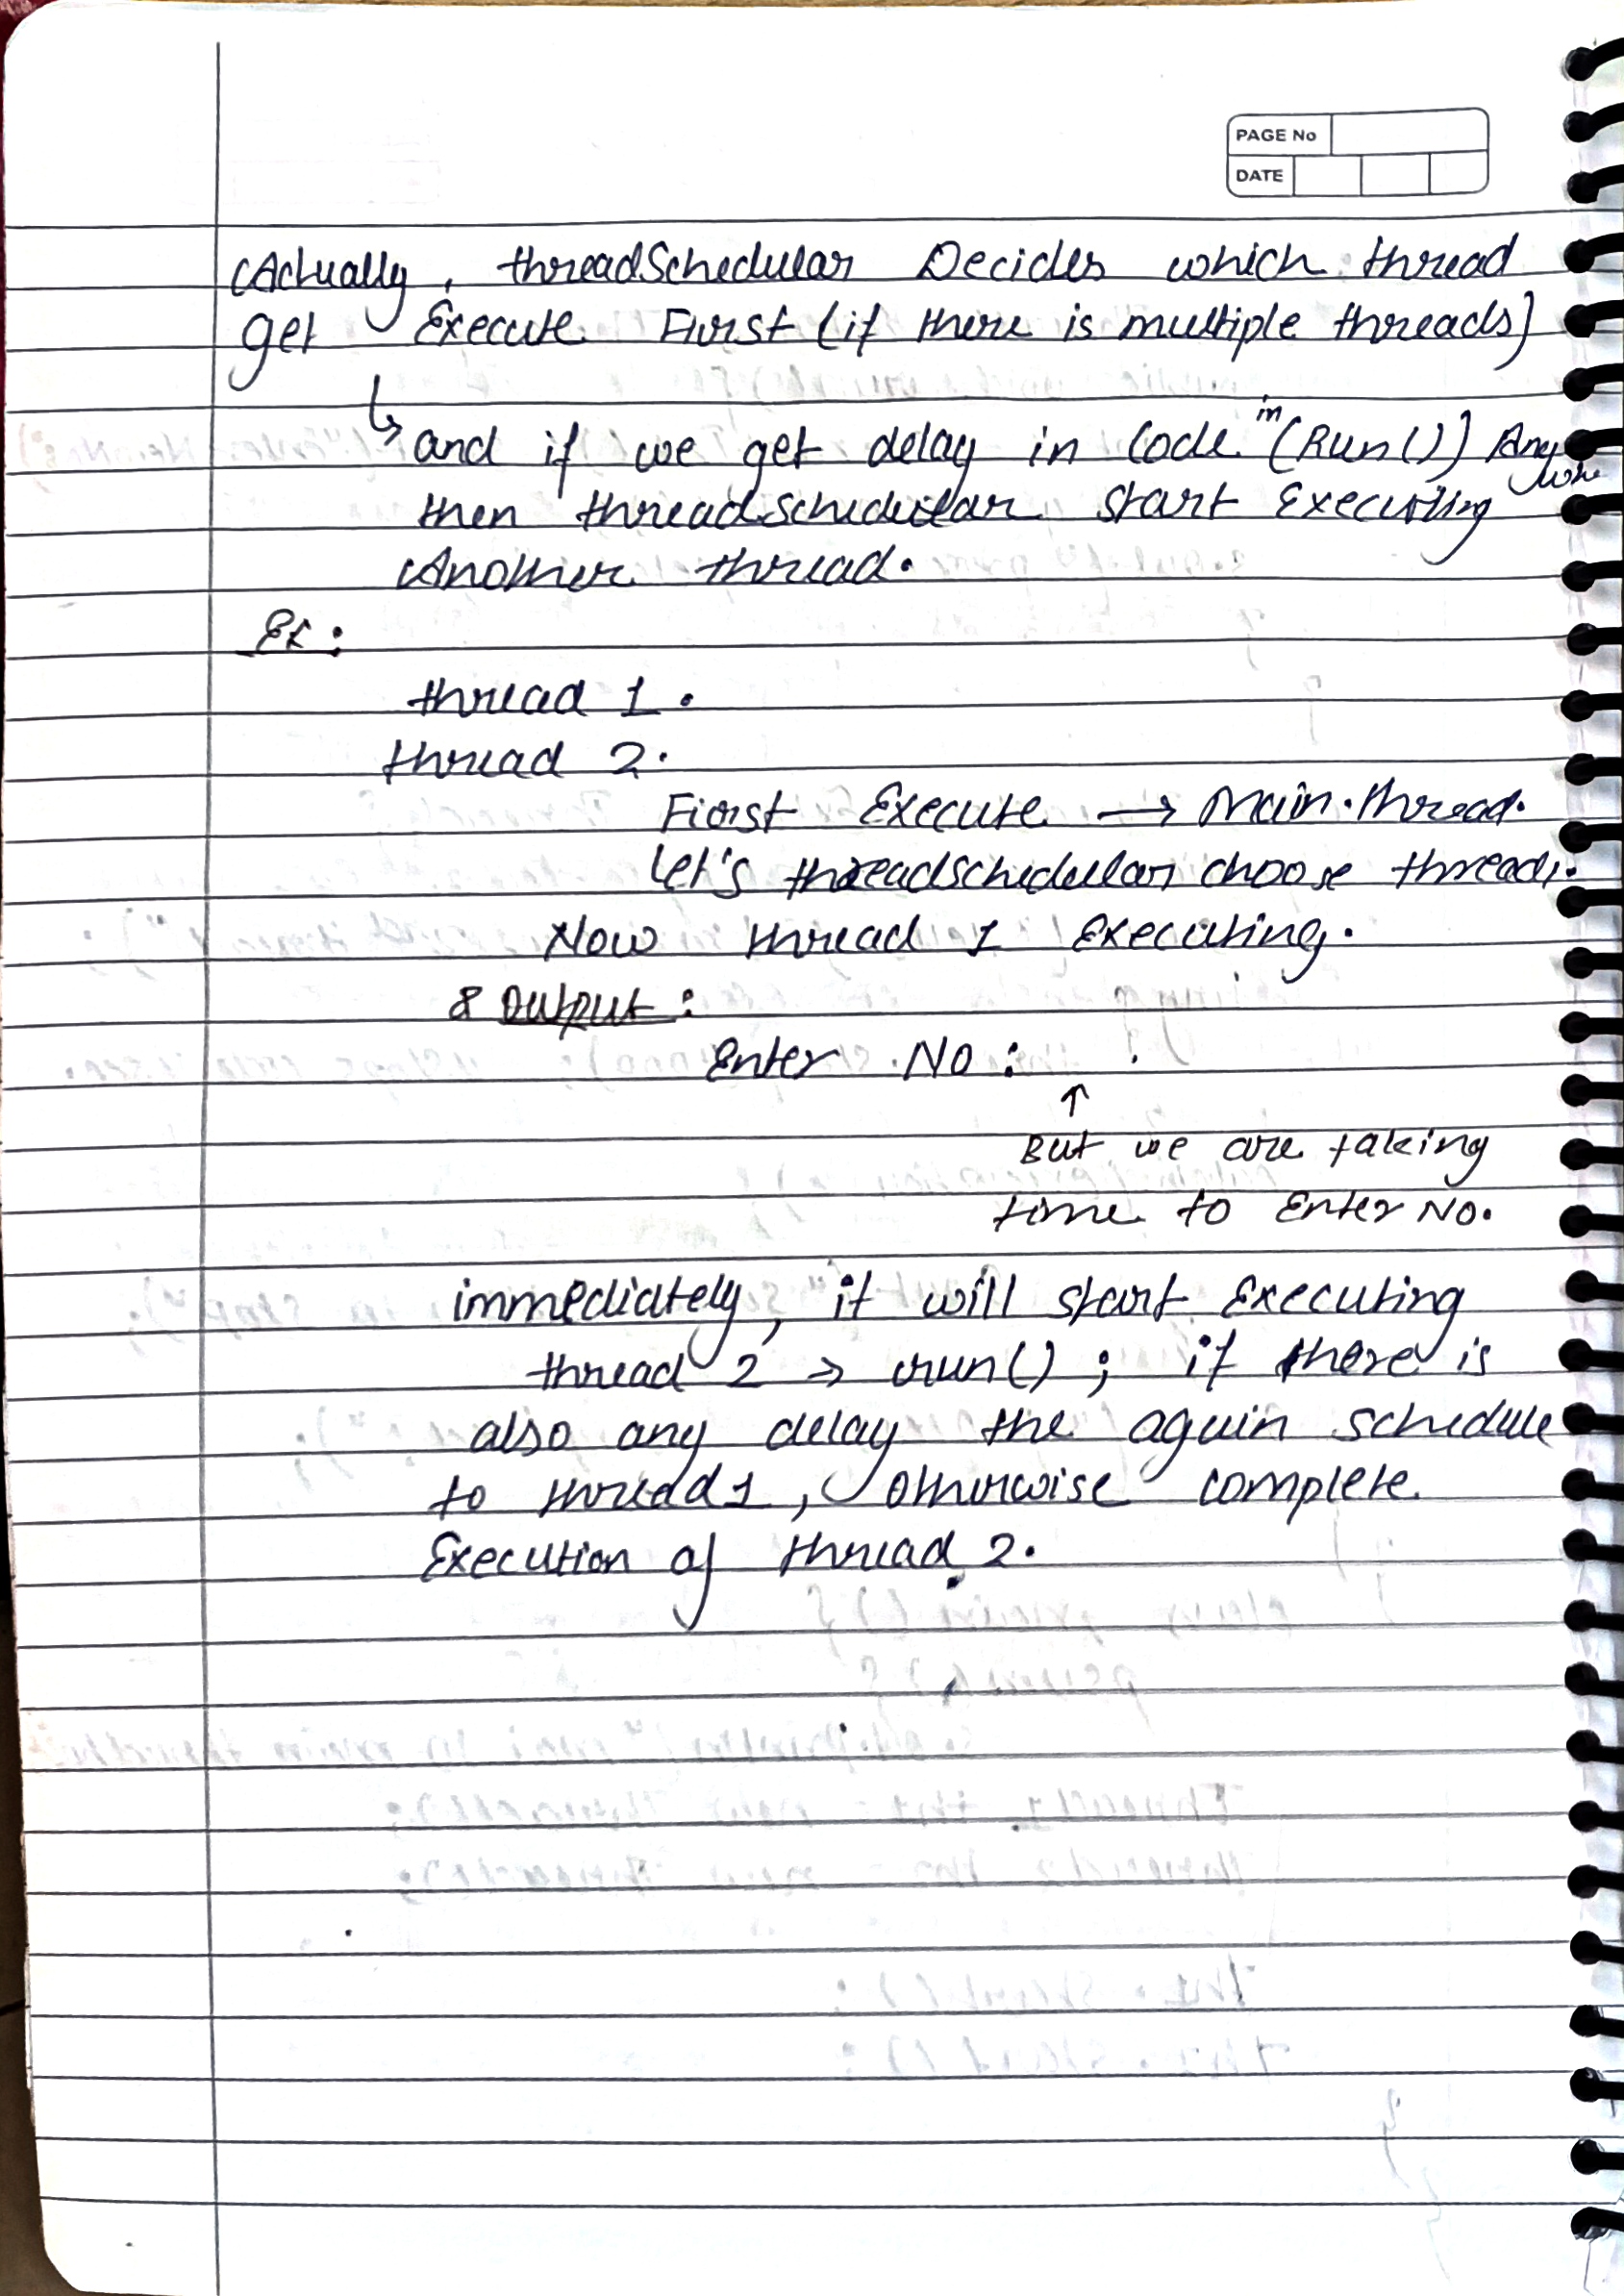 PAGE No
DATE
Actually, threadSchedular Decides which thread
get Execute First (if there is multiple threads)
↳ and if we get delay in Code in (Run()) Any
whe
then threadschedular start Executing
Another thread.
Ex:
thread 1.
thread 2.
First Execute → Main thread.
let's threadschedular choose thread1.
Now thread 1 Executing.
& Output:
Enter No:
↑
But we are taking
time to Enter No.
immediately, it will start Executing
thread 2 → run() ; if there is
also any delay the again schedule
to thread1, otherwise complete
Execution of thread 2.